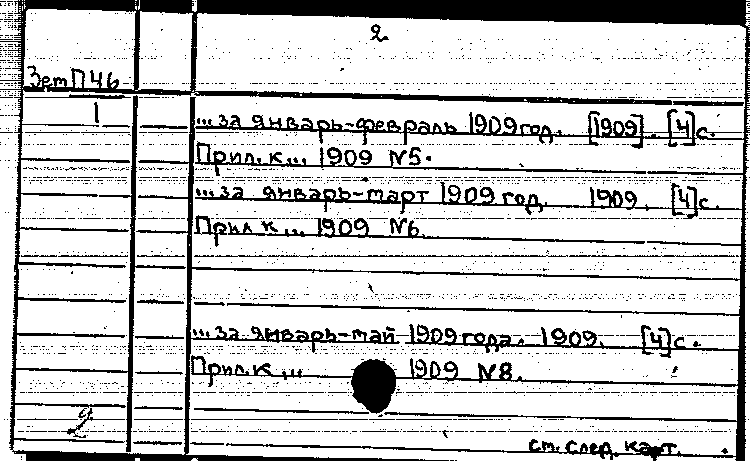 2
ЗетП46
1
... за январь-февраль 1909год. [1909]. [4]с.
Прил. к... 1909 №5.
... за январь-март 1909 год. 1909. [4]с.
Прил к... 1909 №6.
... за январь-май 1909года. 1909. [4]с.
Прил. к ... 1909 №8.
2
см. след. карт.